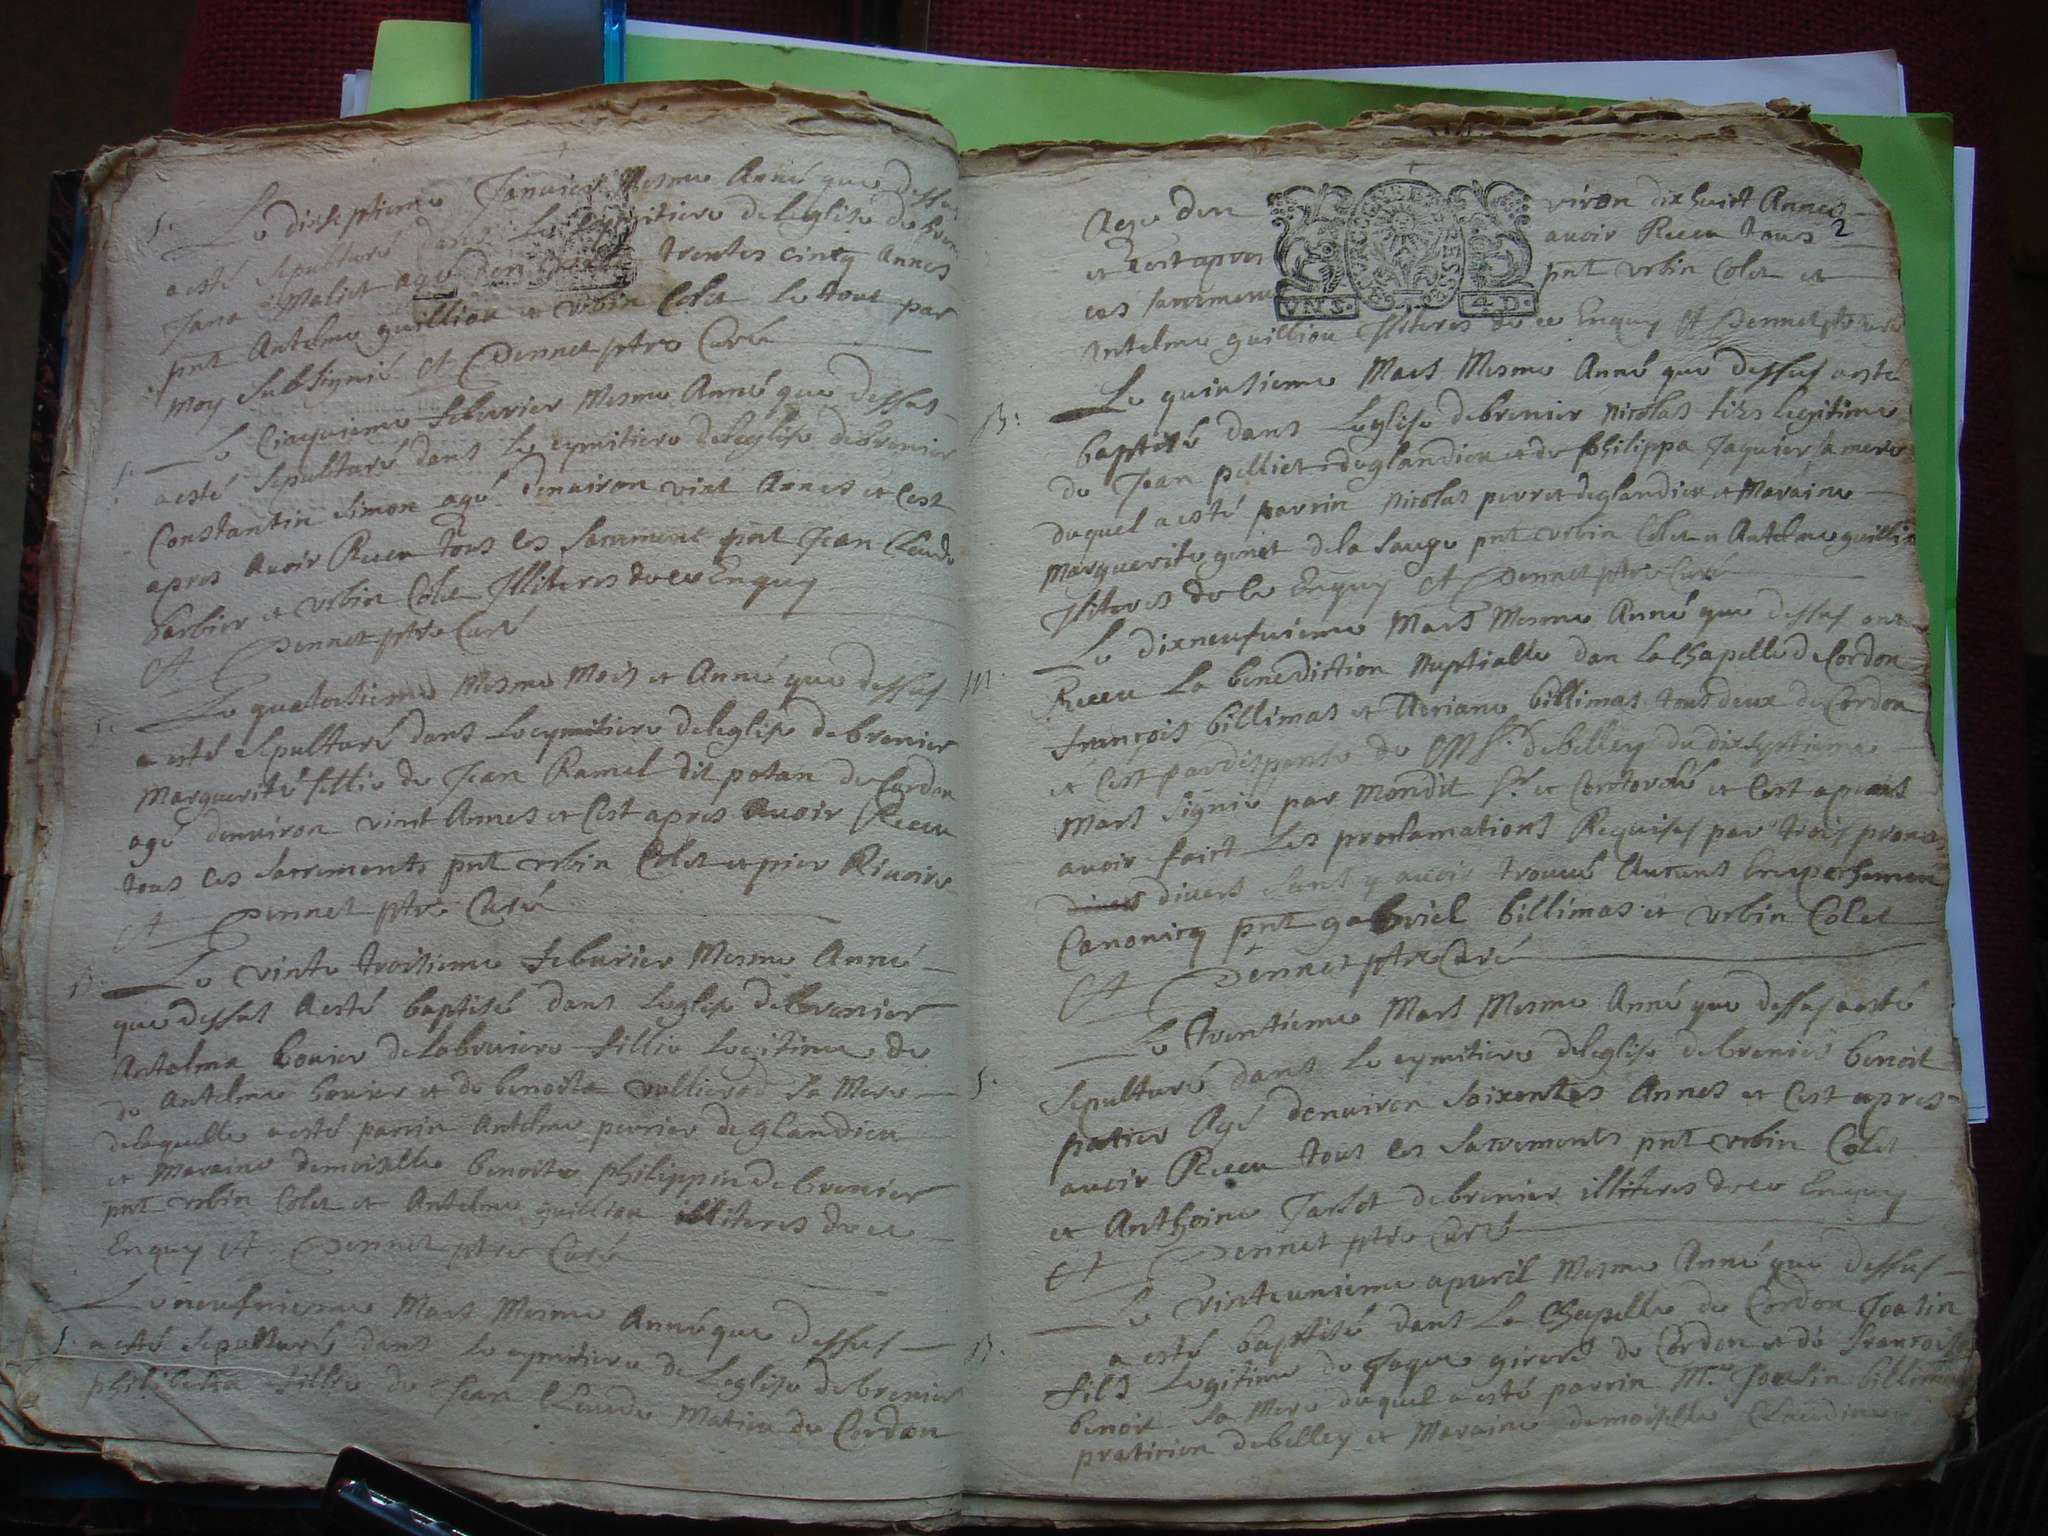 S. Le dixseptieme Januier Mesme Anné que dessus
a esté sepulturé dans Le cymitiere de leglise de bren
Jana Maliet agé den trentes cinq Annes
pnt Antelme guilliou et vrbin Colet Le tout par
moy subsignié et Pennet ptre Curé
S. Le Cinquieme feburier Mesme Anné que dessus
a esté sepulturé dans Le cymitiere de leglise de brenier
Constantin Simon agé denuiron vint Annes et Cest
apres Auoir Receu tous les sacrement pnt Jean Claude
barbier et vrbin Colet Illiteres de ce Enquy
Et Pennet ptre Curé
S. Le quatorsieme Mesme Mois et Anné que dessus
a esté sepulturé dans Le cymitiere de leglise de brenier
Marguerite fillie de Jean Ramel dit potan de Cordon
agé denuiron vint Annes et Cest apres Auoir Receu
tous les sacrements pnt vrbin Colet et pier Riuoire
Et Pennet ptre Curé
B. Le vinte troisieme feburier Mesme Anné
que dessus A esté baptisé dans Leglise de brenier
Antelma bouier de labruiere fillie Legitime de
de Antelme bouier et de benoite vullierod sa Mere
de laquelle a esté parrin Antelme perrier de glandieu
et Maraine demoiselle benoite philippin de brenier
pnt vrbin Colet et Antelme guilliou illiteres de ce
Enquy Et Pennet ptre Curé
Le neufuieme Mars Mesme Anné que dessus
S. a esté sepulturé dans Le cymitiere de Leglise de brenier
philiberta fillie de Jean Claude Matieu de Cordon
Age den viron dix huict Annes
2
et cest apres auoir Receu tous
ces sacrement pnt vrbin Colet et
VN S. 4 D.
Antelme guilliou Illiteres de ce Enquy Et Pennet ptre Curé
B. Le quinsieme Mars Mesme Anné que dessus a esté
baptisé dans Leglise de brenier Nicolas fils legitime
de Jean pelliet de glandieu et de philippa Jaquier sa mere
duquel a esté parrin Nicolas perret de glandieu et Maraine
Marguerite genet de la sauge pnt vrbin Colet et Antelme guilliou
Illiteres de ce Enquy Et Pennet ptre Curé
M. Le dixneufuieme Mars Mesme Anné que dessus ont
Receu La benediction Nuptialle dan La Chapelle de Cordon
francois billimas et Aeriane billimas tous deux de Cordon
et Cest par dispense de Mgr. de belley du dixseptieme
Mars signie par Mondit Sr. et Controlé et Cest apres
auoir faict Les proclamations Requises par trois prones
diuers diuers sans y auoir trouué Aucuns Empechement
Canonicq pnt gabriel billimas et vrbin Colet
Et Pennet ptre Curé
Le trentieme Mars Mesme Anné que dessus a esté
S. sepulturé dans Le cymitiere de leglise de brenier benoit
patier Agé denuiron soixentes Annes et Cest apres
auoir Receu tous les sacrements pnt vrbin Colet
et Anthoine Jarlot de brenier illiteres de ce Enquy
Et Pennet ptre Curé
Le vinteunieme apuril Mesme Anné que dessus
B. a esté baptisé dans La Chapelle de Cordon Joasin
fils Legitime de Jaque girerd de Cordon et de francoise
benoit sa Mere duquel a esté parrin Mre Joasin billimas
praticien de belley et Maraine demoiselle Claudine